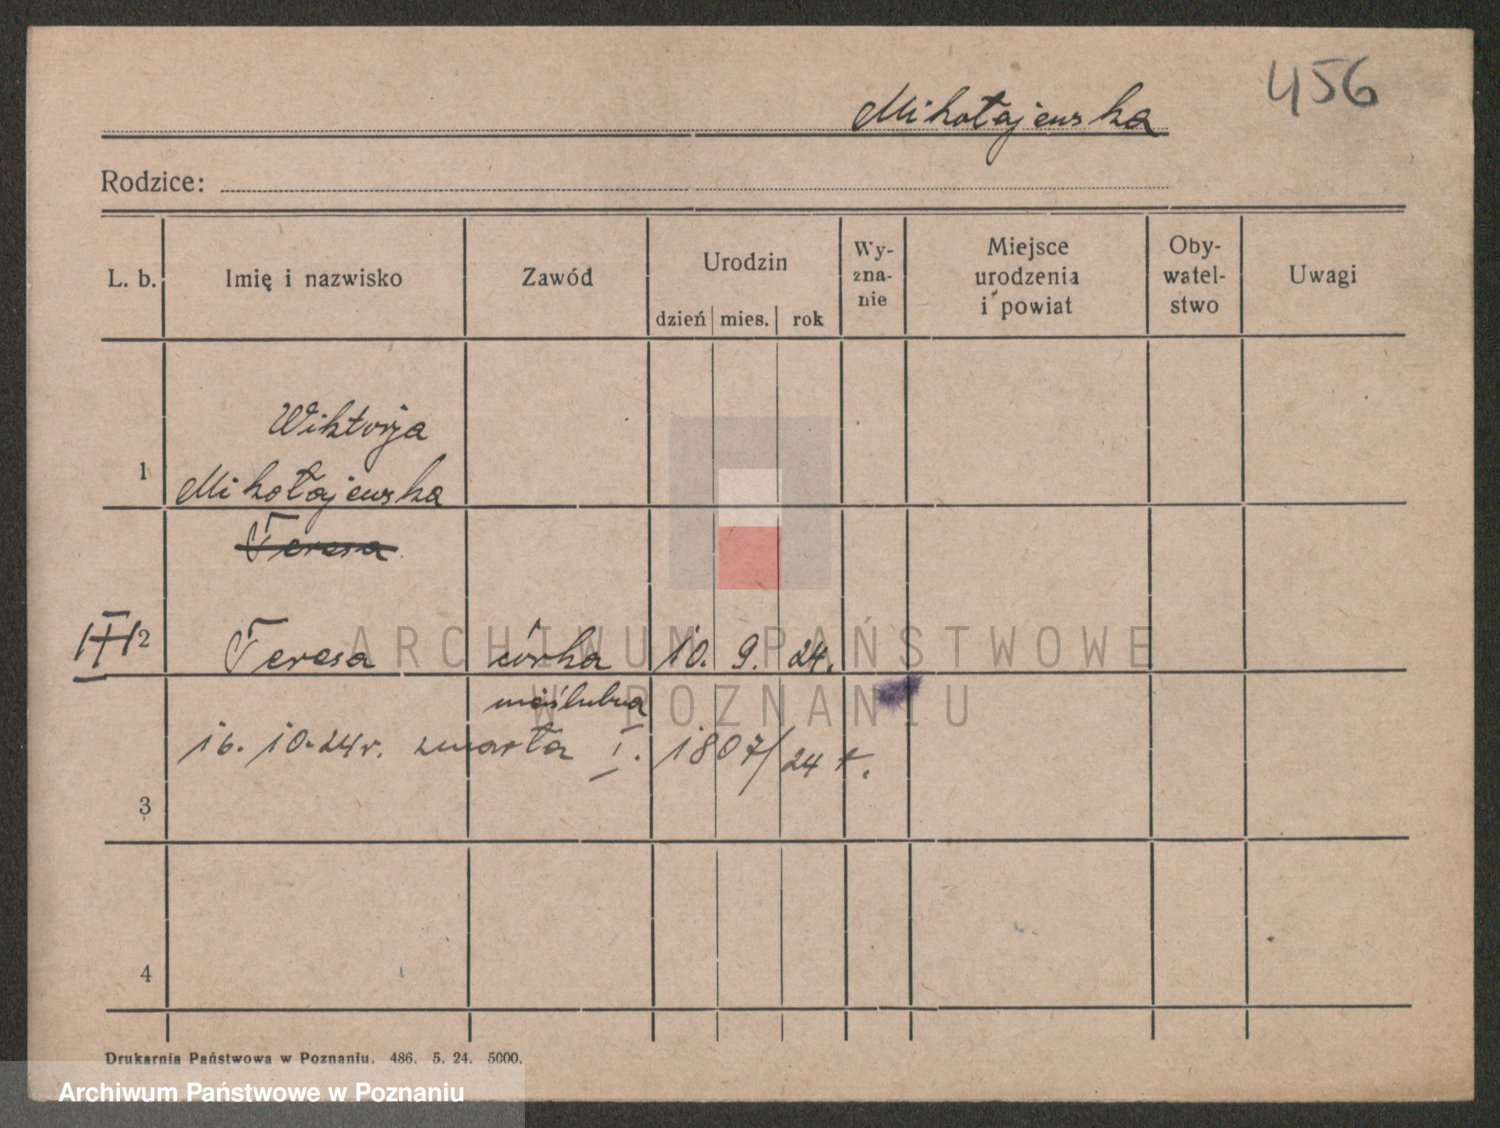 456
Mikołajewska
Rodzice:
L. b. Imię i nazwisko Zawód Urodzin dzień mies. rok Wy-zna-nie Miejsce urodzenia i powiat Oby-watel-stwo Uwagi
Wiktorja
1 Mikołajewska
Teresa
III 2 Teresa córka 10. 9. 24.
nieślubna
16. 10. 24 r. zmarła I. 1807/24 r.
3
4
Drukarnia Państwowa w Poznaniu. 486. 5. 24. 5000.
ARCHIWUM PAŃSTWOWE
W POZNANIU
Archiwum Państwowe w Poznaniu